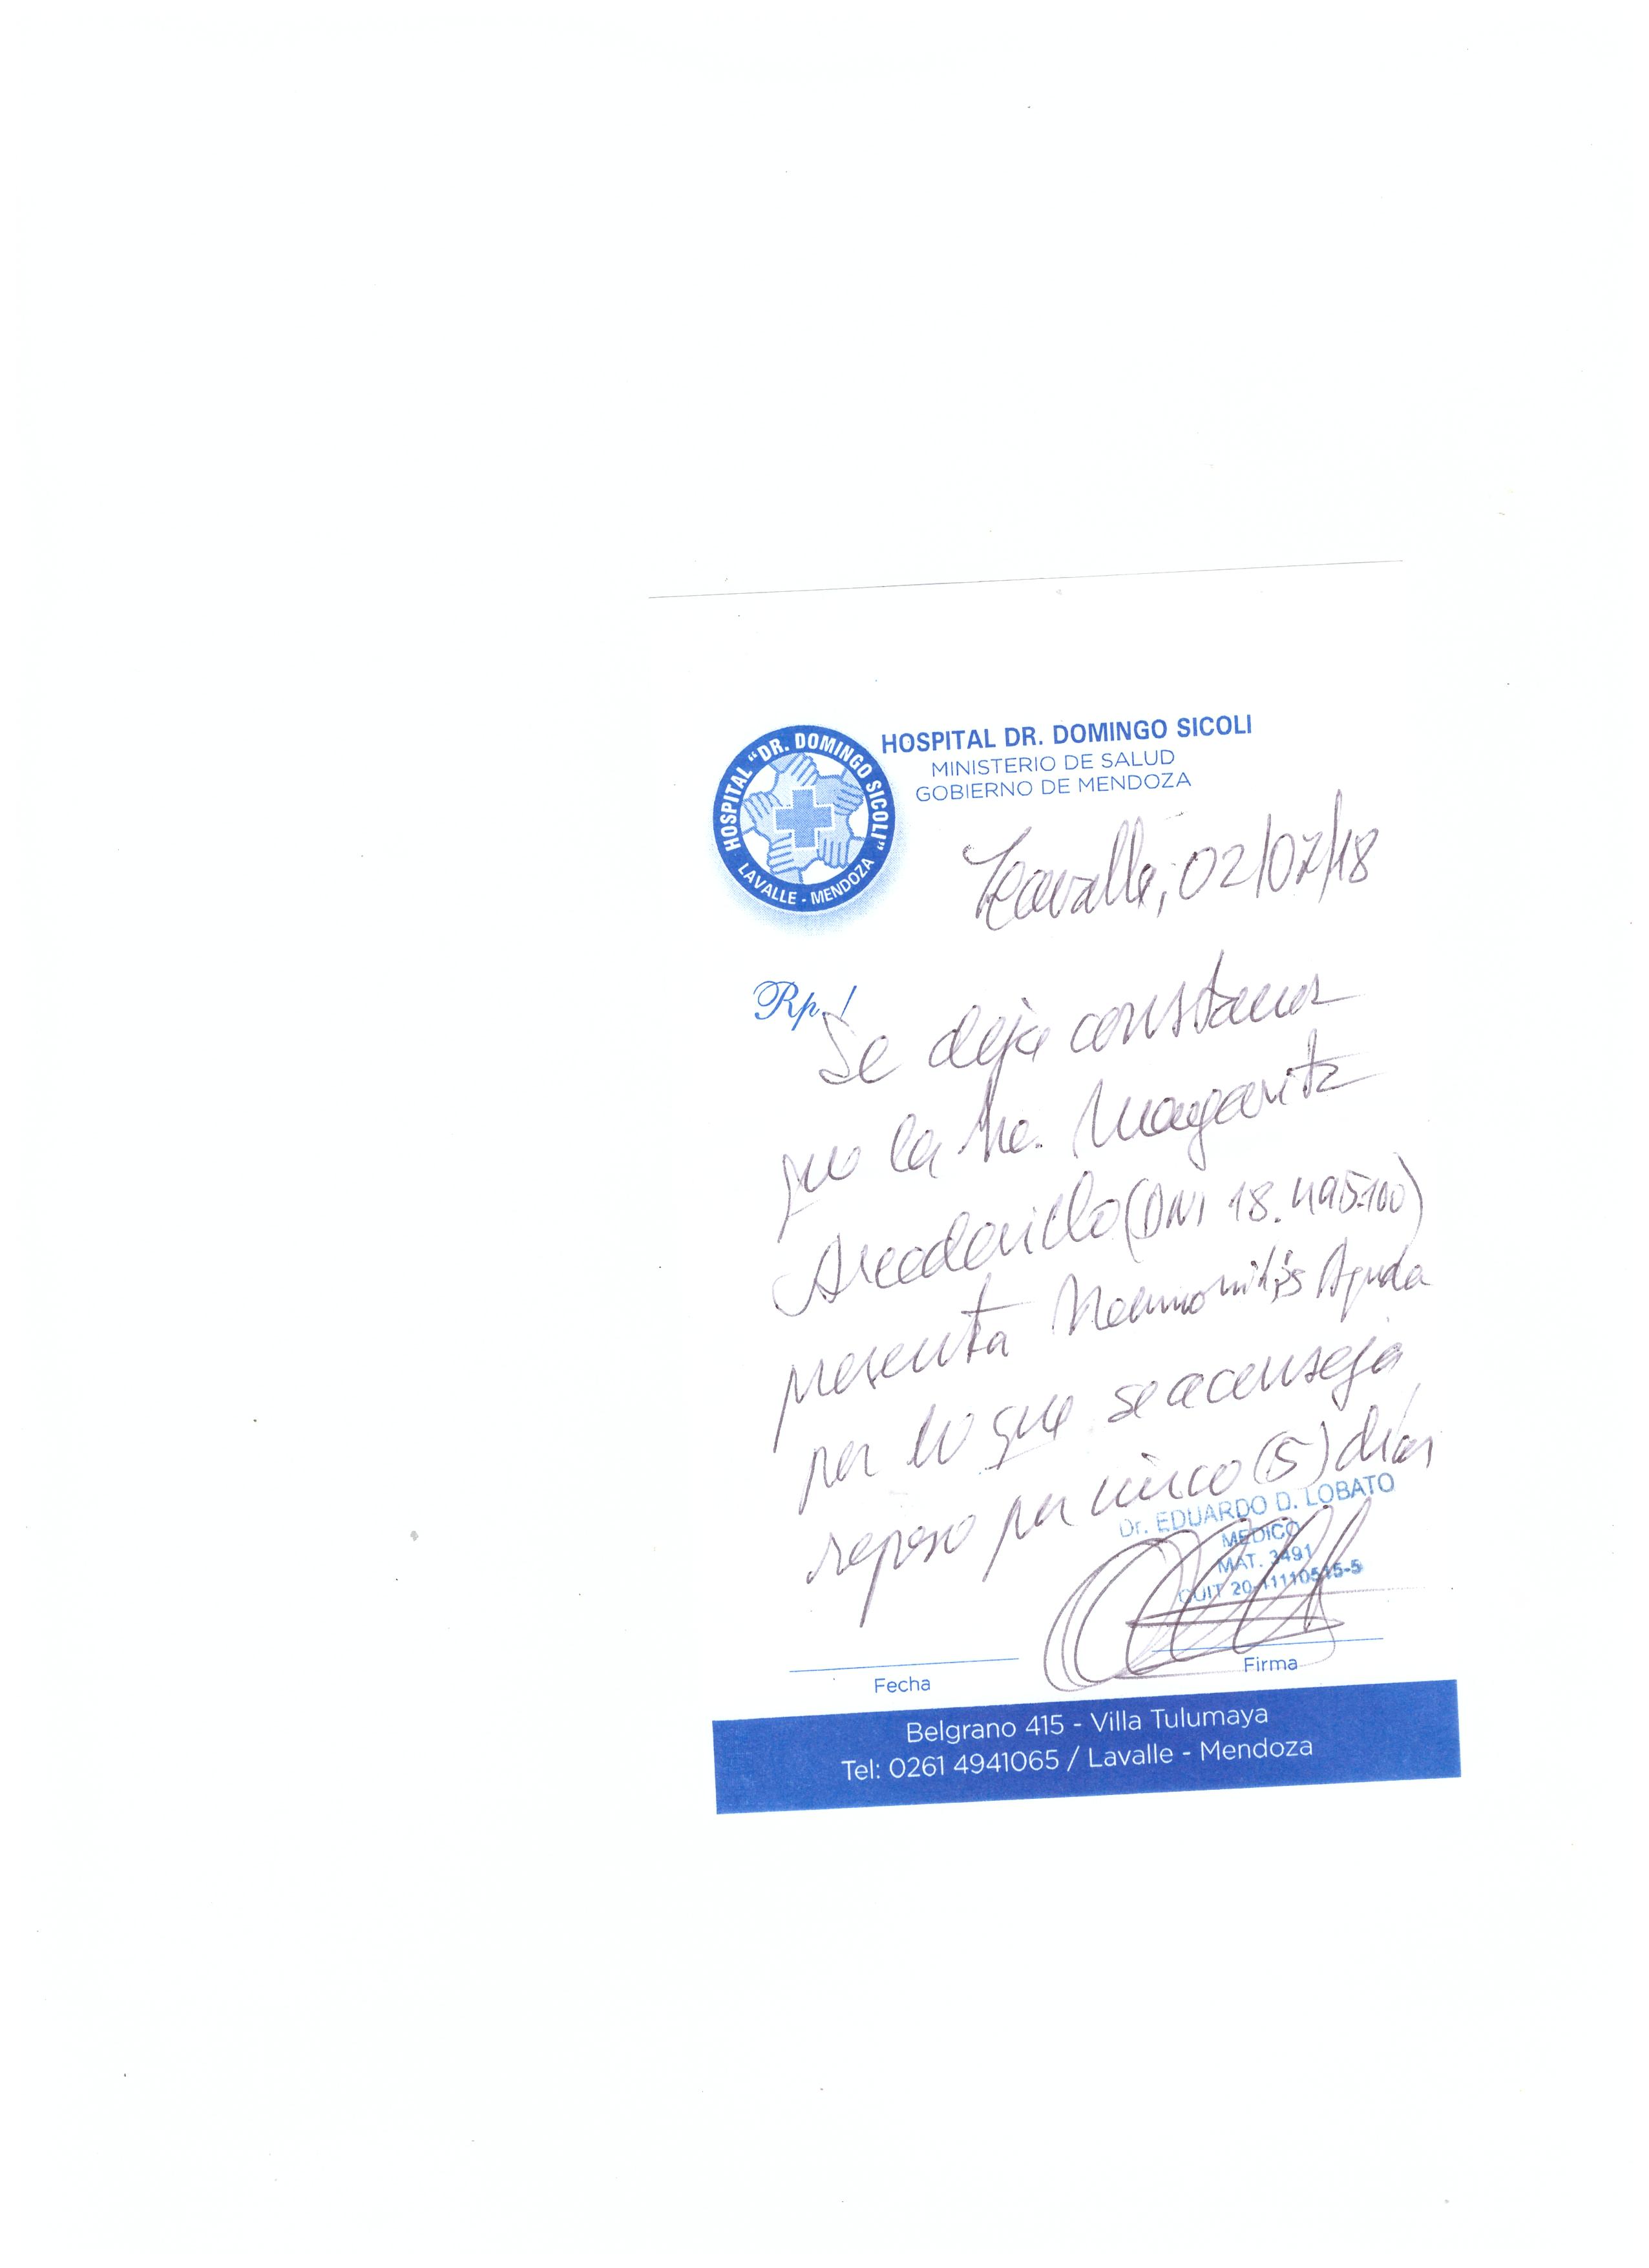 HOSPITAL "DR. DOMINGO SICOLI"
LAVALLE - MENDOZA
HOSPITAL DR. DOMINGO SICOLI
MINISTERIO DE SALUD
GOBIERNO DE MENDOZA
Lavalle, 02/07/18
Rp./
Se deja constancia
que la Sra. Margarita
(DNI 18.495.100)
presenta Neumonitis Aguda
por lo que se aconseja
reposo por cinco (5) días
Dr. EDUARDO D. LOBATO
MEDICO
MAT. 3491
CUIT 20-11110515-5
Fecha
Firma
Belgrano 415 - Villa Tulumaya
Tel: 0261 4941065 / Lavalle - Mendoza